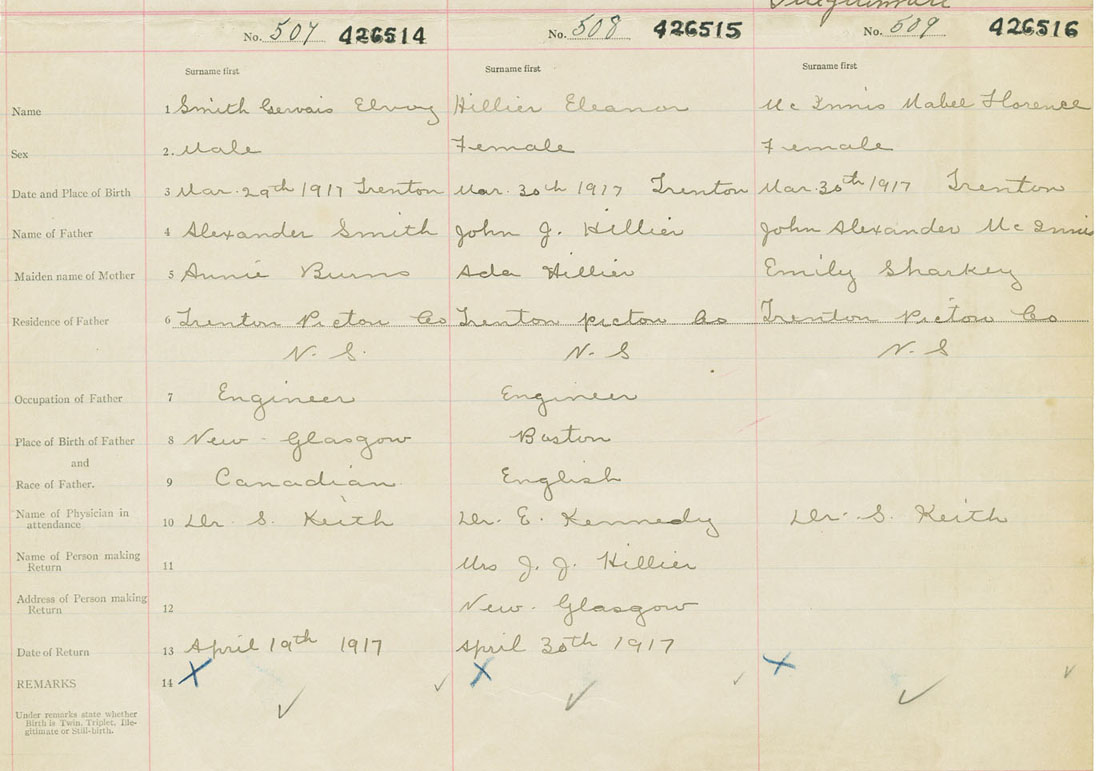 No. 507 426514 No. 508 426515 No. 509 426516
Surname first Surname first Surname first
Name 1 Smith Gervais Elroy Hillier Eleanor Mc Innis Mabel Florence
Sex 2. Male Female Female
Date and Place of Birth 3 Mar. 29th 1917 Trenton Mar. 30th 1917 Trenton Mar. 30th 1917 Trenton
Name of Father 4 Alexander Smith John J. Hillier John Alexander Mc Innis
Maiden name of Mother 5 Annie Burns Ada Hillier Emily Sharkey
Residence of Father 6 Trenton Pictou Co Trenton pictou Co Trenton Pictou Co
N. S. N. S N. S
Occupation of Father 7 Engineer Engineer
Place of Birth of Father 8 New Glasgow Boston
and
Race of Father. 9 Canadian English
Name of Physician in
attendance 10 Dr. S. Keith Dr. E. Kennedy Dr. S. Keith
Name of Person making
Return 11 Mrs J. J. Hillier
Address of Person making
Return 12 New Glasgow
Date of Return 13 April 19th 1917 April 30th 1917
REMARKS 14
Under remarks state whether
Birth is Twin, Triplet, Ille-
gitimate or Still-birth.